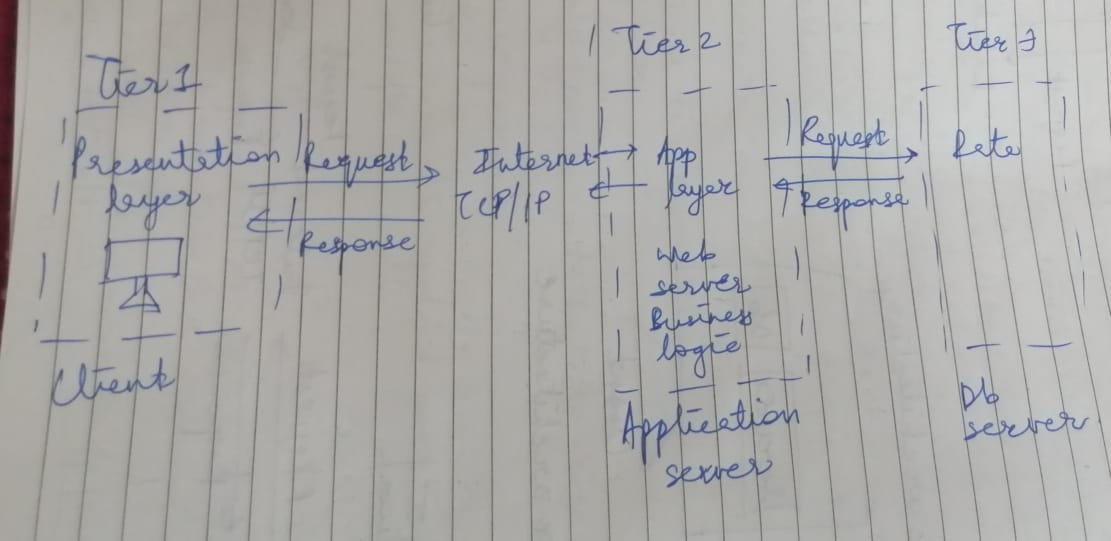 Tier 1
Presentation
layer
Client
Request
Response
Internet
TCP/IP
Tier 2
App
layer
Web
server
Business
logic
Application
server
Request
Response
Tier 3
Data
Db
server